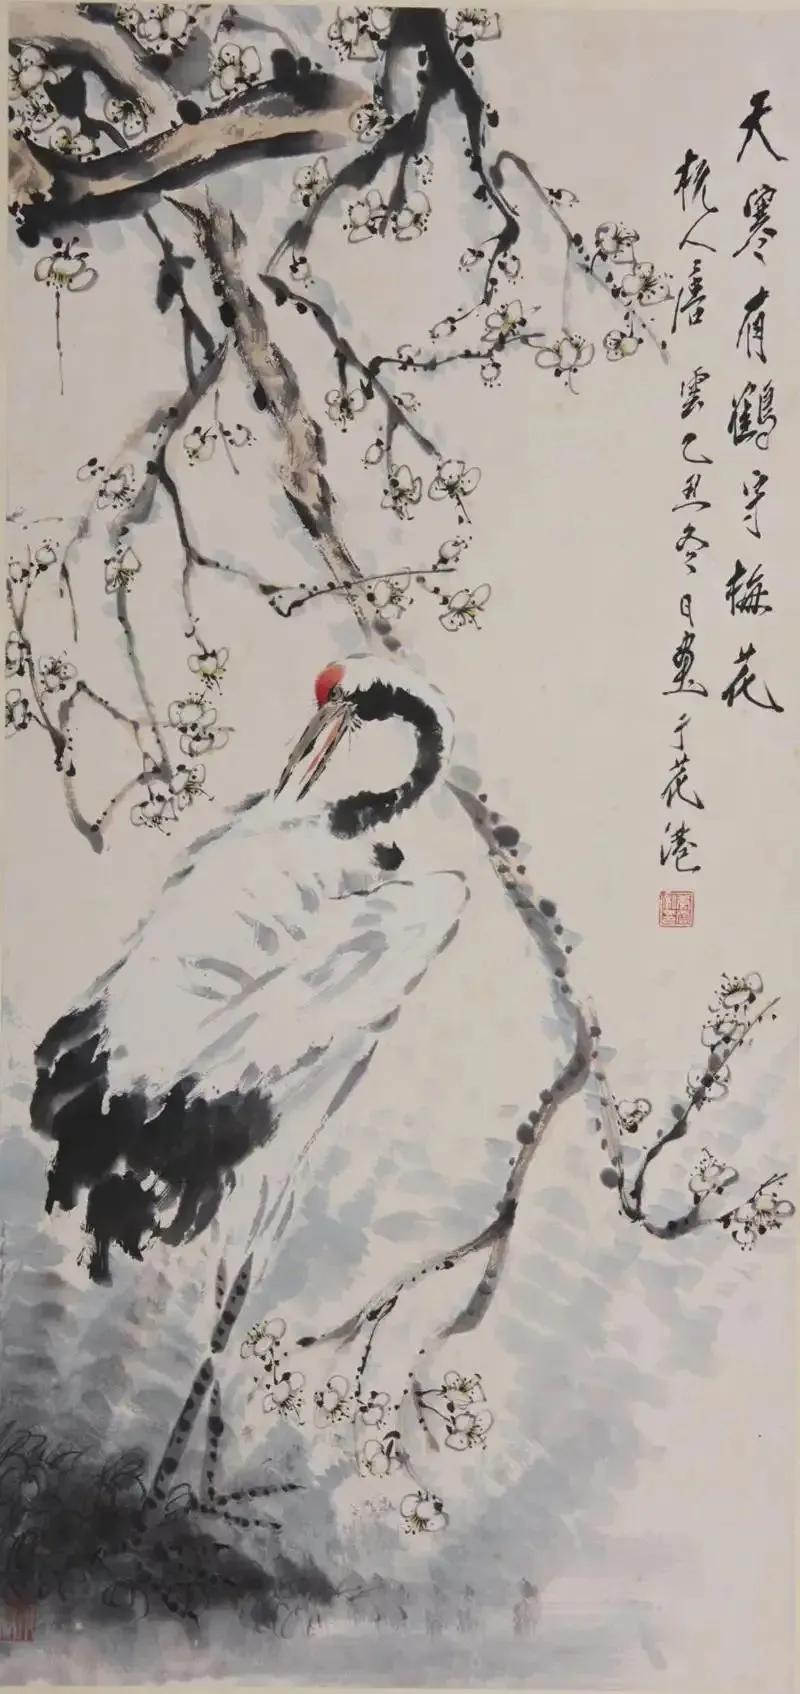 天寒有鶴守梅花
杭人唐雲乙丑冬日畫于花港